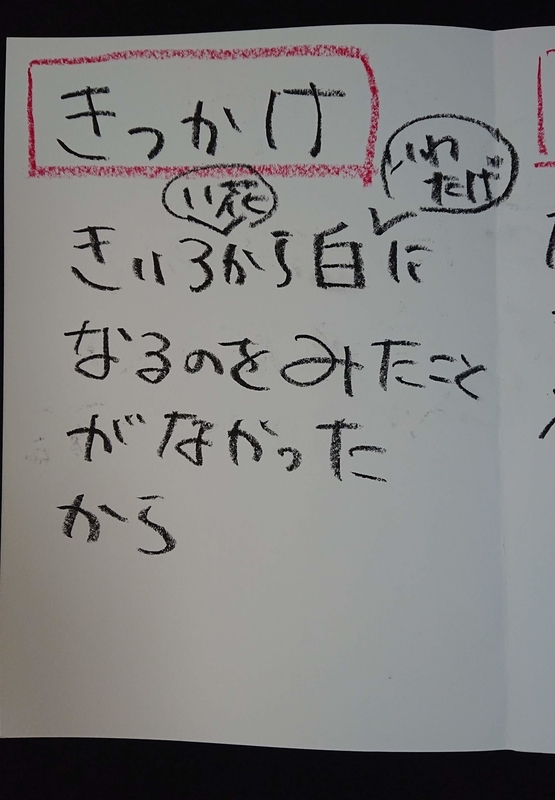 きっかけ
い花
いわ
たげ
きいろから白に
なるのをみたこと
がなかった
から